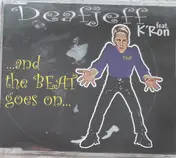 Deafjeff
feat.
K'Ron
...and
the BEAT
goes on...